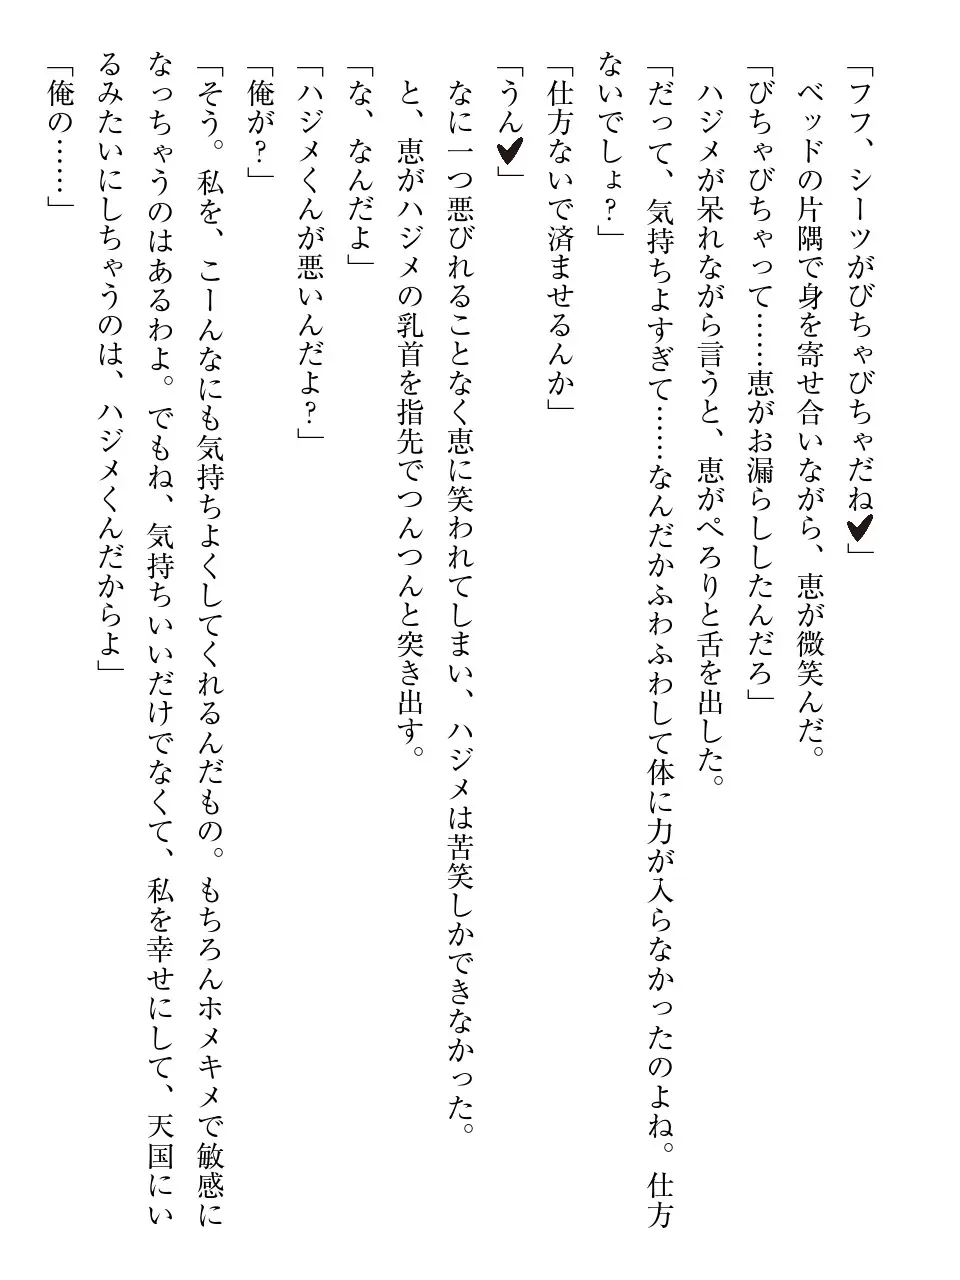 「フフ、シーツがびちゃびちゃだね♥」
ベッドの片隅で身を寄せ合いながら、恵が微笑んだ。
「びちゃびちゃって……恵がお漏らししたんだろ」
ハジメが呆れながら言うと、恵がぺろりと舌を出した。
「だって、気持ちよすぎて……なんだかふわふわして体に力が入らなかったのよね。仕方
ないでしょ？」
「仕方ないで済ませるんか」
「うん♥」
なに一つ悪びれることなく恵に笑われてしまい、ハジメは苦笑しかできなかった。
と、恵がハジメの乳首を指先でつんつんと突き出す。
「な、なんだよ」
「ハジメくんが悪いんだよ？」
「俺が？」
「そう。私を、こーんなにも気持ちよくしてくれるんだもの。もちろんホメキメで敏感に
なっちゃうのはあるわよ。でもね、気持ちいいだけでなくて、私を幸せにして、天国にい
るみたいにしちゃうのは、ハジメくんだからよ」
「俺の……」